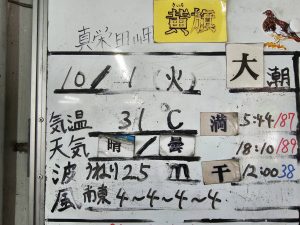 真栄田岬 黄旗
10/1 (火) 大潮
気温 31℃ 満 5:44/187
天気 晴/曇 18:10/189
波 うねり2.5m 干 12:00 38
風 南東 4~4~4~4